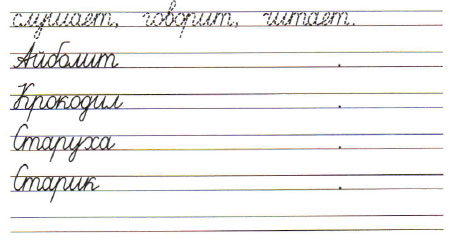 слушает, говорит, читает.
Айболит .
Крокодил .
Старуха .
Старик .